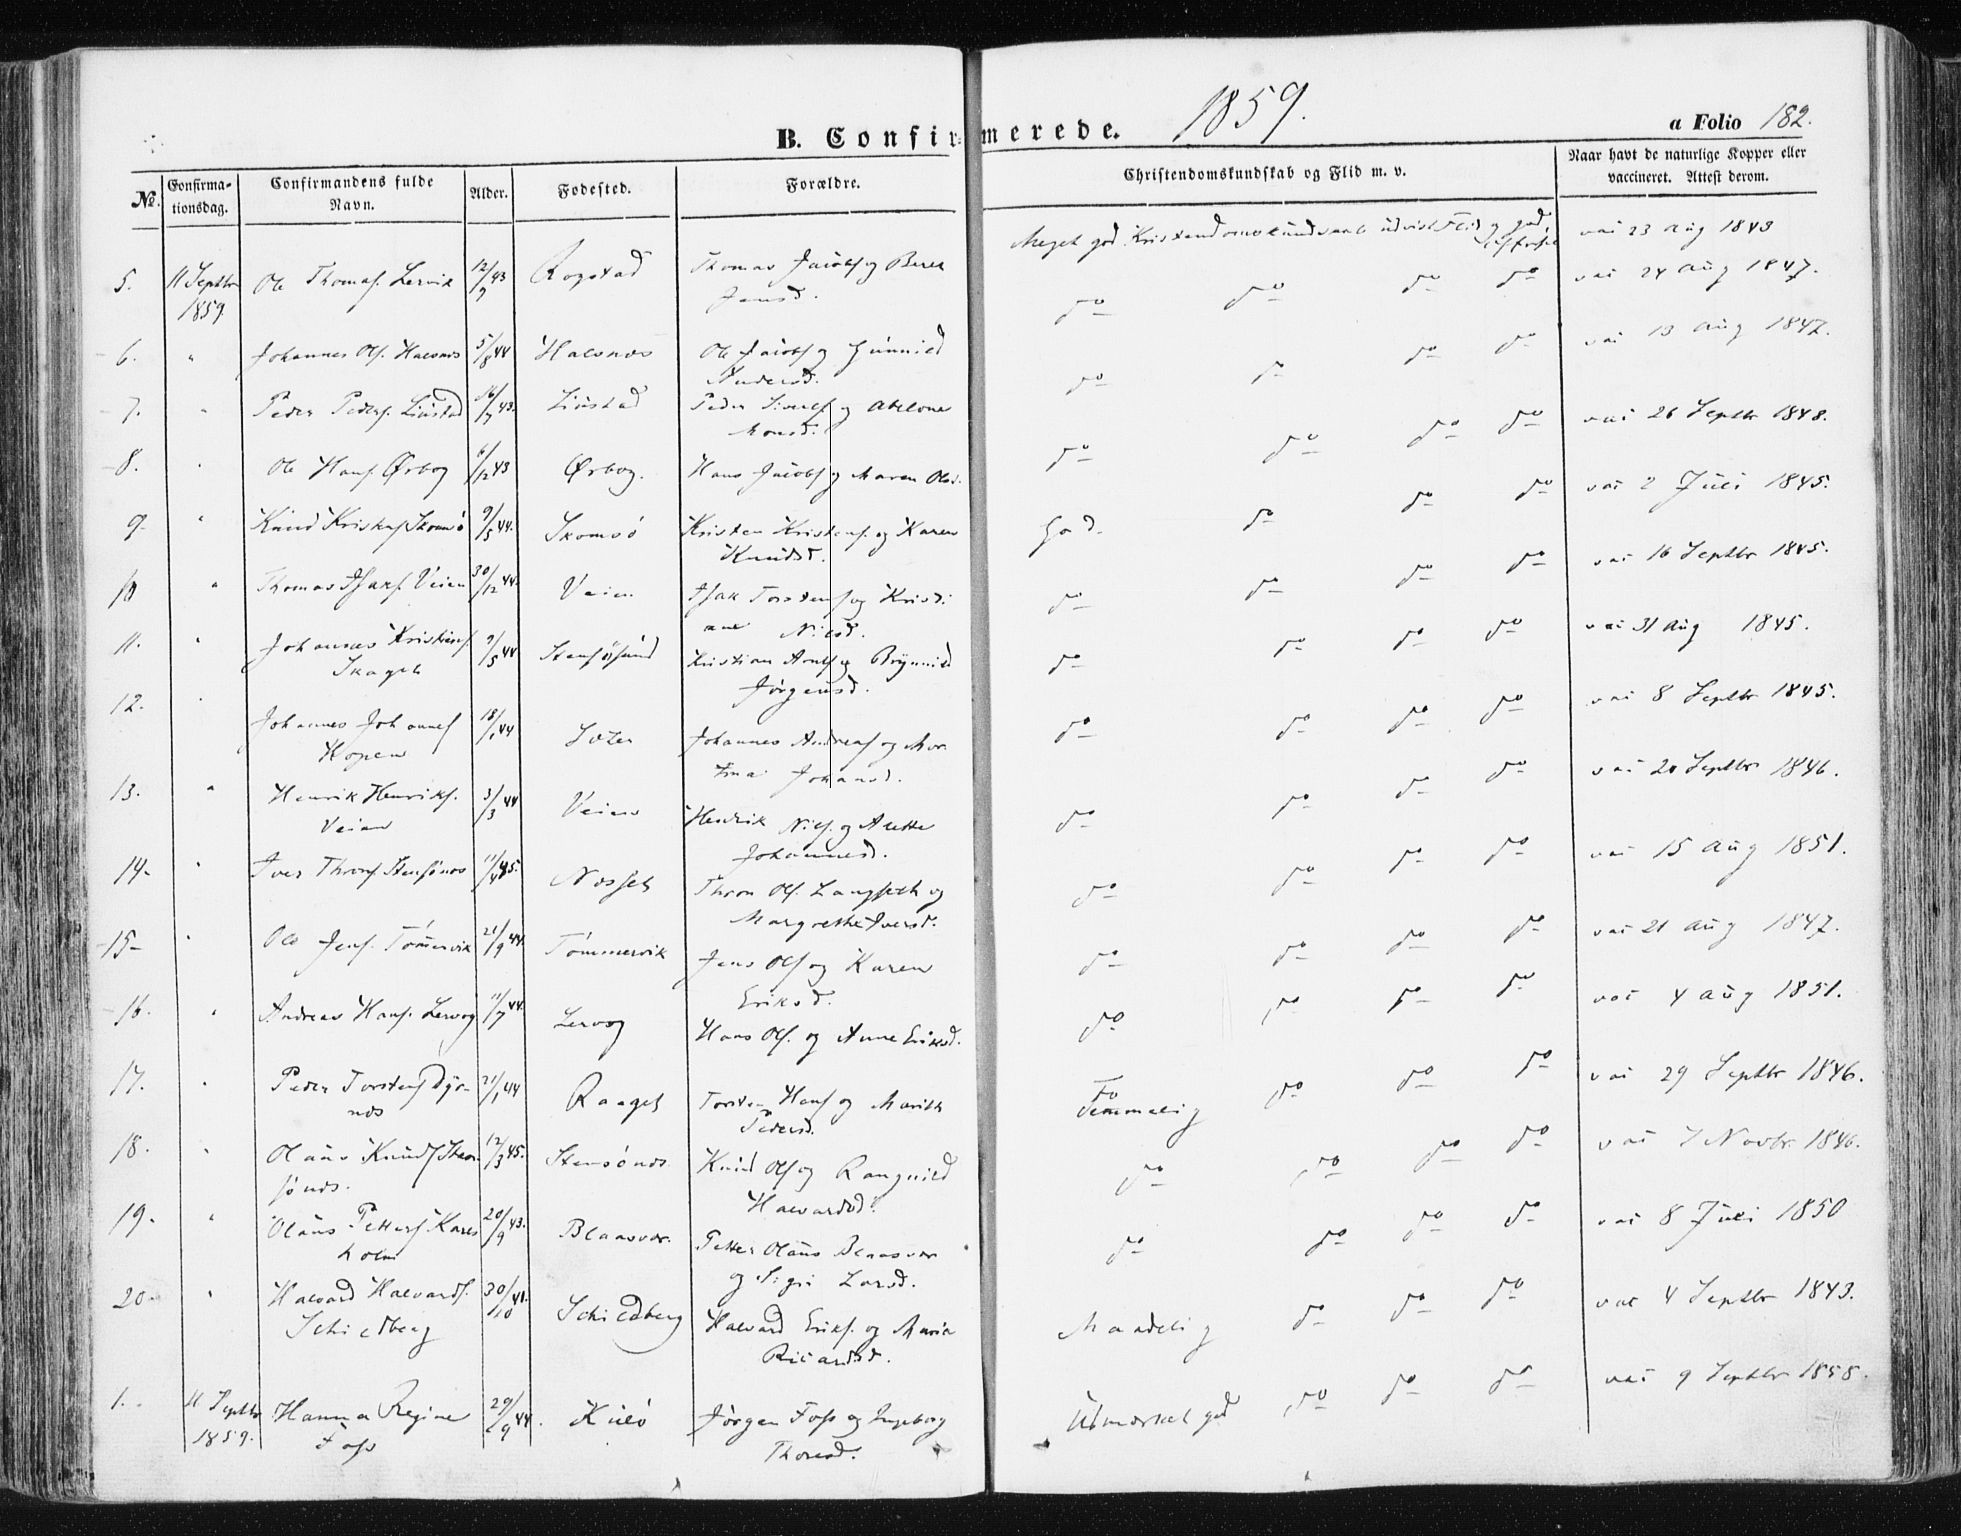 B. Confirmerede. 1859. a Folio 182.
No. Confirmationsdag. Confirmandens fulde Navn. Alder. Fødested. Forældre. Christendomskundskab og Flid m. v. Naar havt de naturlige Kopper eller vaccineret. Attest derom.
5. 11 Septbr 1859. Ole Thomas. Lervik 12/9 43 Rogstad Thomas Jacobs og Beret Jensd. Meget god Kristendomskundskab udvist Flid og god vac 23 Aug 1843
6. " Johannes Ols. Halsnæs 5/8 44 Halsnæs Ole Jacobs og Gunnild Andersd. do do do do vac 24 Aug 1847.
7. " Peder Peders. Liustad 16/7 43. Liustad Peder Siverts og Abelone Monsd. do do do do vac 13 Aug 1847.
8. " Ole Hans. Ørbog 6/12 43 Ørbog. Hans Jacobs og Maren Olsd. do do do do vac 26 Septbr 1848.
9. " Knud Kristens Skomsö 9/5 44. Skomsö Kristen Kristens. og Karen Knudsd. God. do do do vac 2 Juli 1845.
10 " Thomas Isaks. Veien 30/12 44. Veien Isak Torstens og Kristiane Nilsd. do do do do vac 16 Septbr 1845.
11. " Johannes Kristians Skaget 9/5 44 Kristian Arnts og Brynnild Jørgensd. do do do do vac 31 Aug 1845.
12. " Johannes Johannes Kopen 18/1 44 Johannes Andreas og Mortina Johansd. do do do do vac 8 Septbr 1845.
13. " Henrik Henriks. Veien 3/3 44 Veien Hendrik Nils. og Anette Johannesd. do do do do vac 20 Septbr 1846.
14. " Iver Throns Stensönæs 11/4 45. Næsset Thron Ols. Langseth og Margrethe Iversd. do do do do vac 15 Aug 1851.
15 " Ole Jens. Tömmervik 21/9 44. Tömmervik Jens Ols og Karen Eriksd. do do do do vac 21 Aug 1847.
16. " Andreas Hans. Lervog 11/7 44. Lervog Hans Ols. og Anne Eriksd. do do do do vac 4 Aug 1851.
17. " Peder Torstens Dyrnæs 21/1 44 Raaget Torsten Hans og Marith Pedersd. Temmelig do do do vac 29 Septbr 1846.
18. " Olaus Knuds Stensönæs. 12/3 45. Stensönæs. Knud Ols og Rangnild Halvardsd. do do do do vac 7 Novbr 1846.
19. " Olaus Petters Karlsholm 20/9 43. Blaasvær. Petter Olaus Blaasvær og Sigri Larsd. do do do do vac 8 Juli 1850
20. " Halvard Halvards. Schiedberg 30/10 41. Schiedberg Halvard Eriks. og Maria Ricardsd. Maadelig do do do vac 4 Septbr 1843.
1. 11 Septbr 1859. Hanna Regine Foss 29/9 44. Kulö Jörgen Foss og Ingeborg Thoresd. Udmærket god do do do vac 9 Septbr 1858.